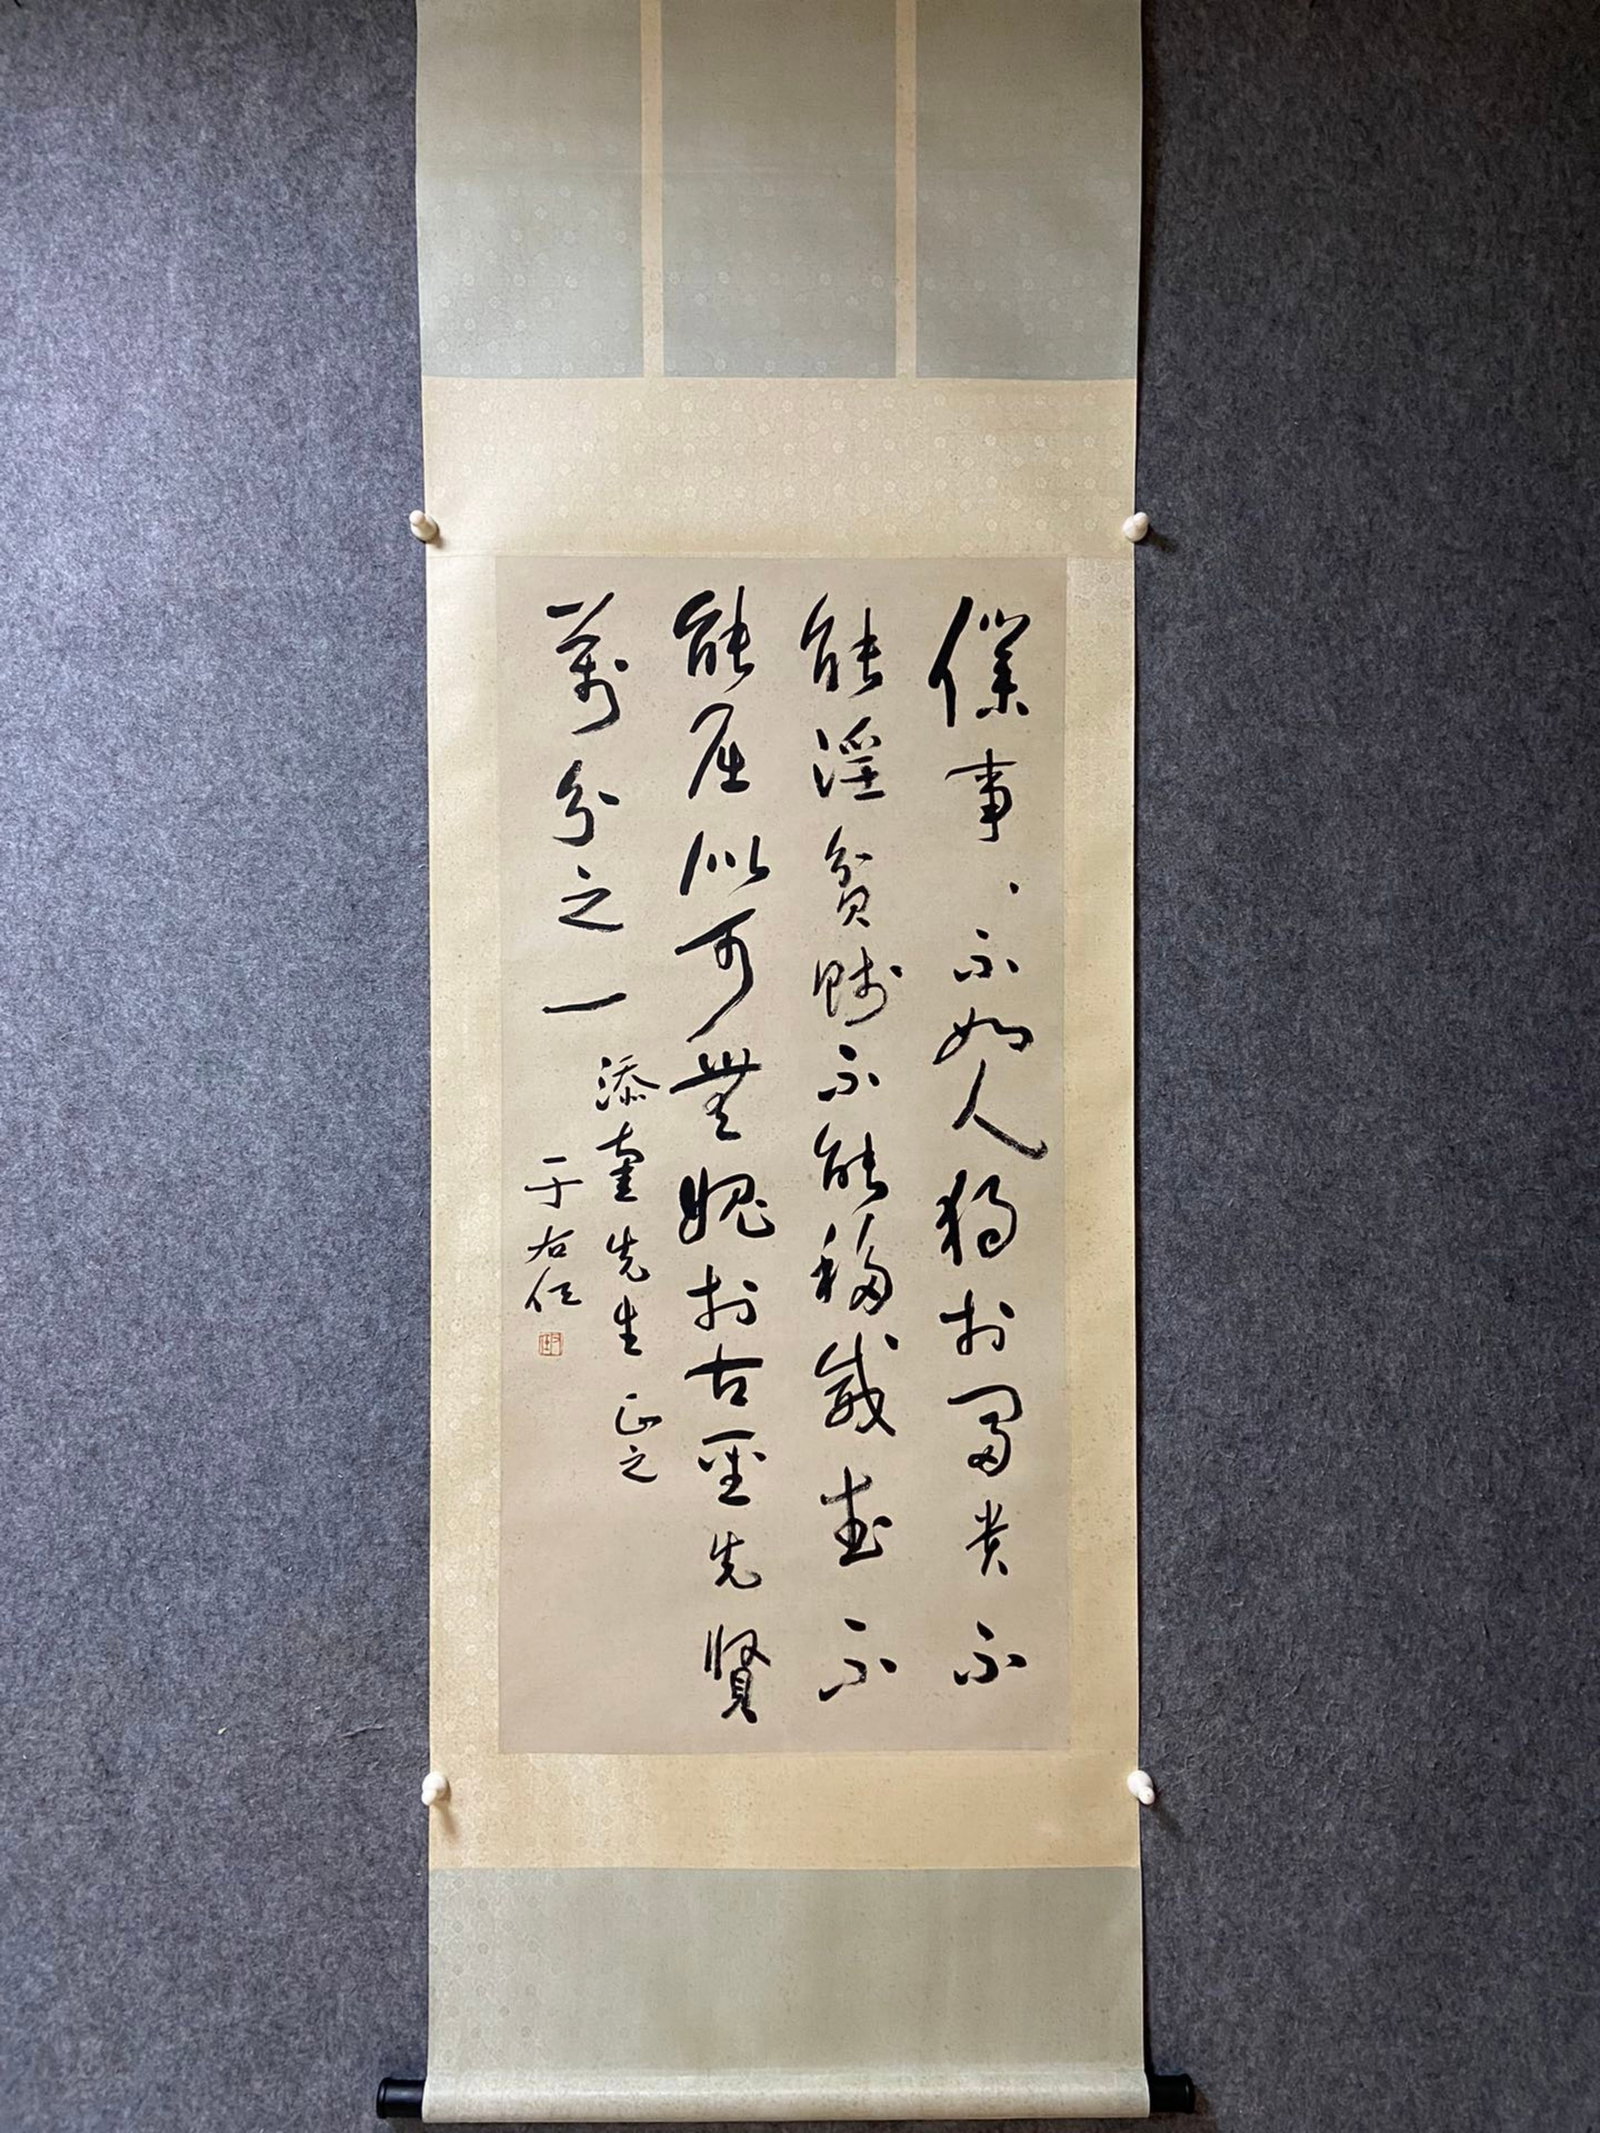 僕事、不如人獨於冨貴不
能淫貧賤不能移威武不
能屈似可無愧於古聖先賢
萬分之一
添奎先生正之
于右任